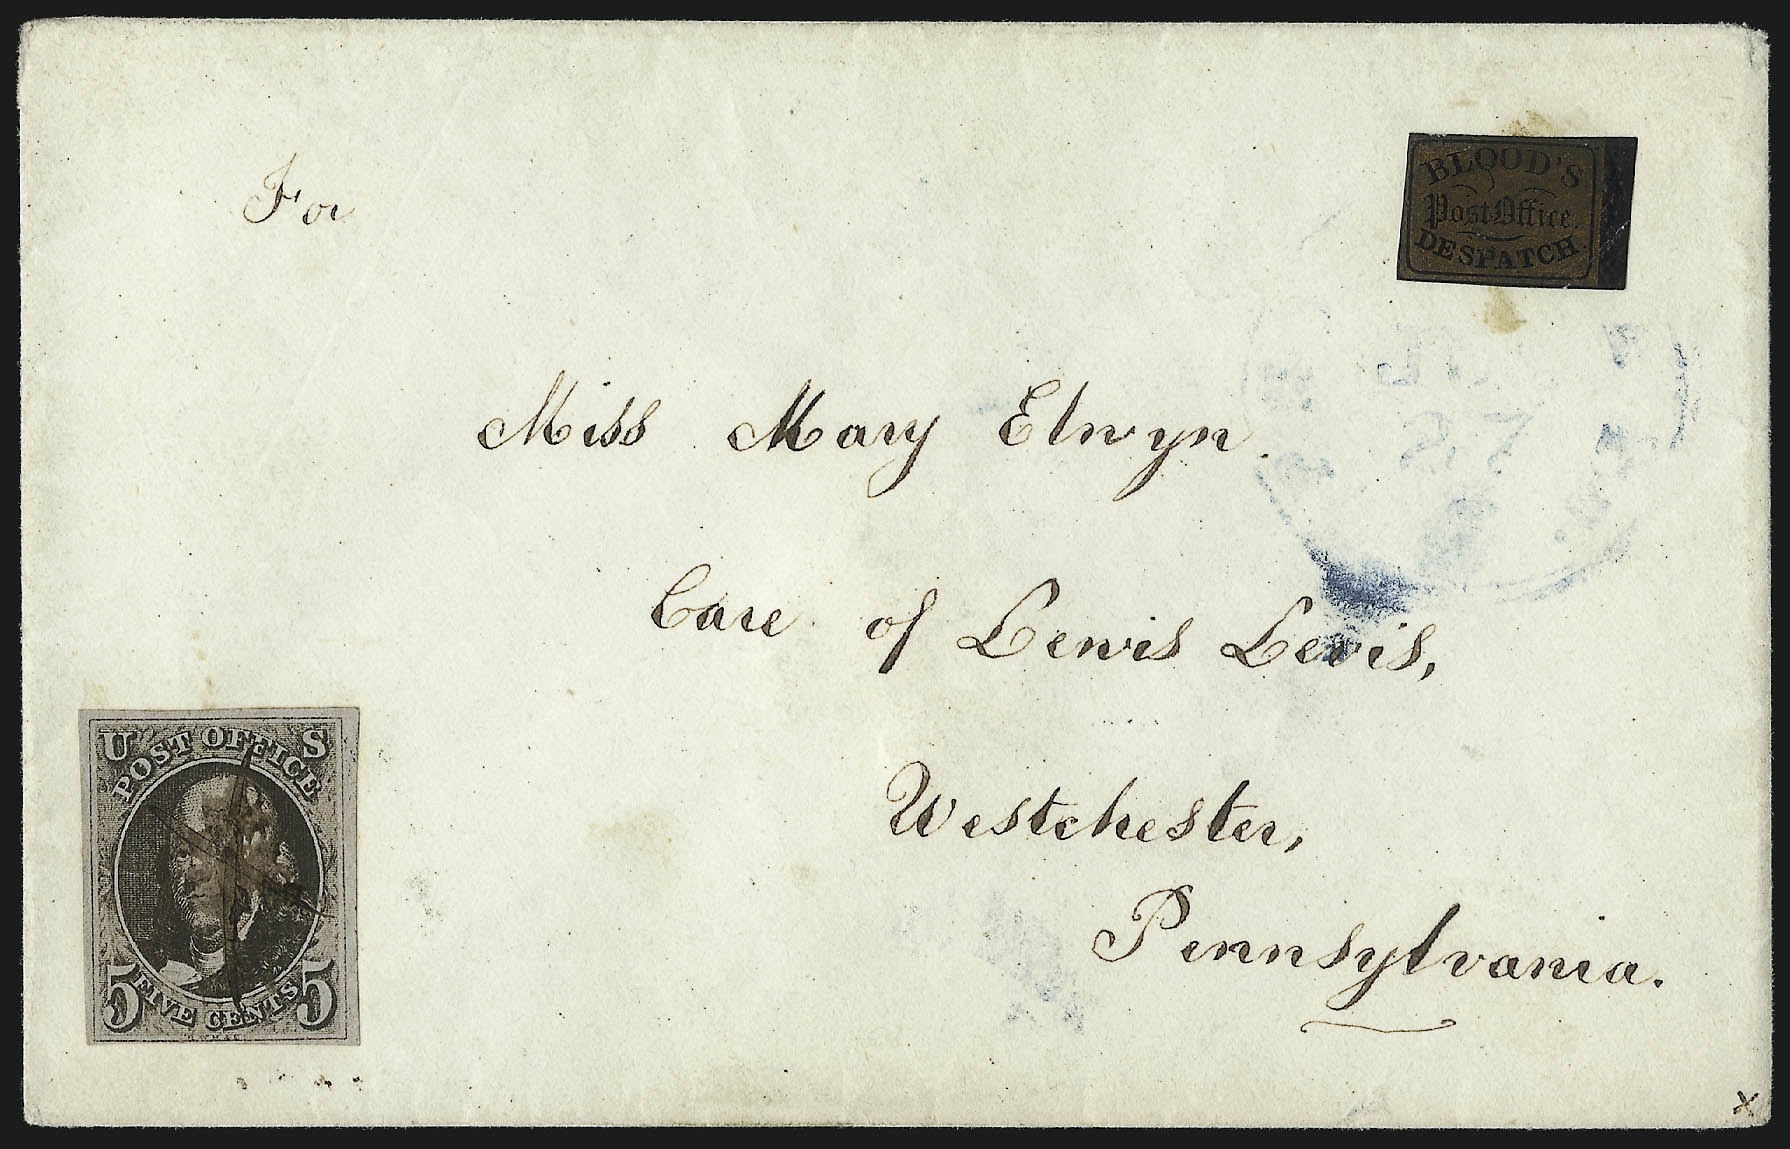 For
BLOOD'S
Post Office
DESPATCH
Miss Mary Elwyn.
Care of Lewis Levis,
Westchester,
Pennsylvania.
U S
POST OFFICE
5 FIVE CENTS 5
x